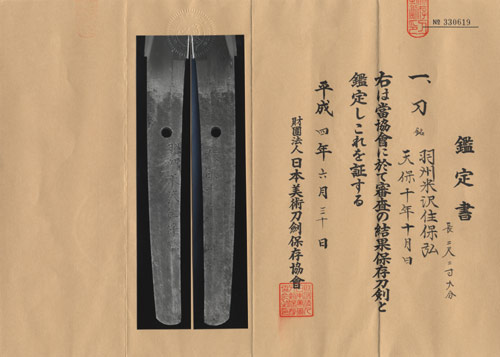 № 330619
鑑定書
一、刀 銘 羽州米沢住保弘
天保十年十月日
長二尺二寸六分
右は當協會に於て審査の結果保存刀剣と
鑑定しこれを証する
平成四年六月三十日
財團法人日本美術刀劍保存協會